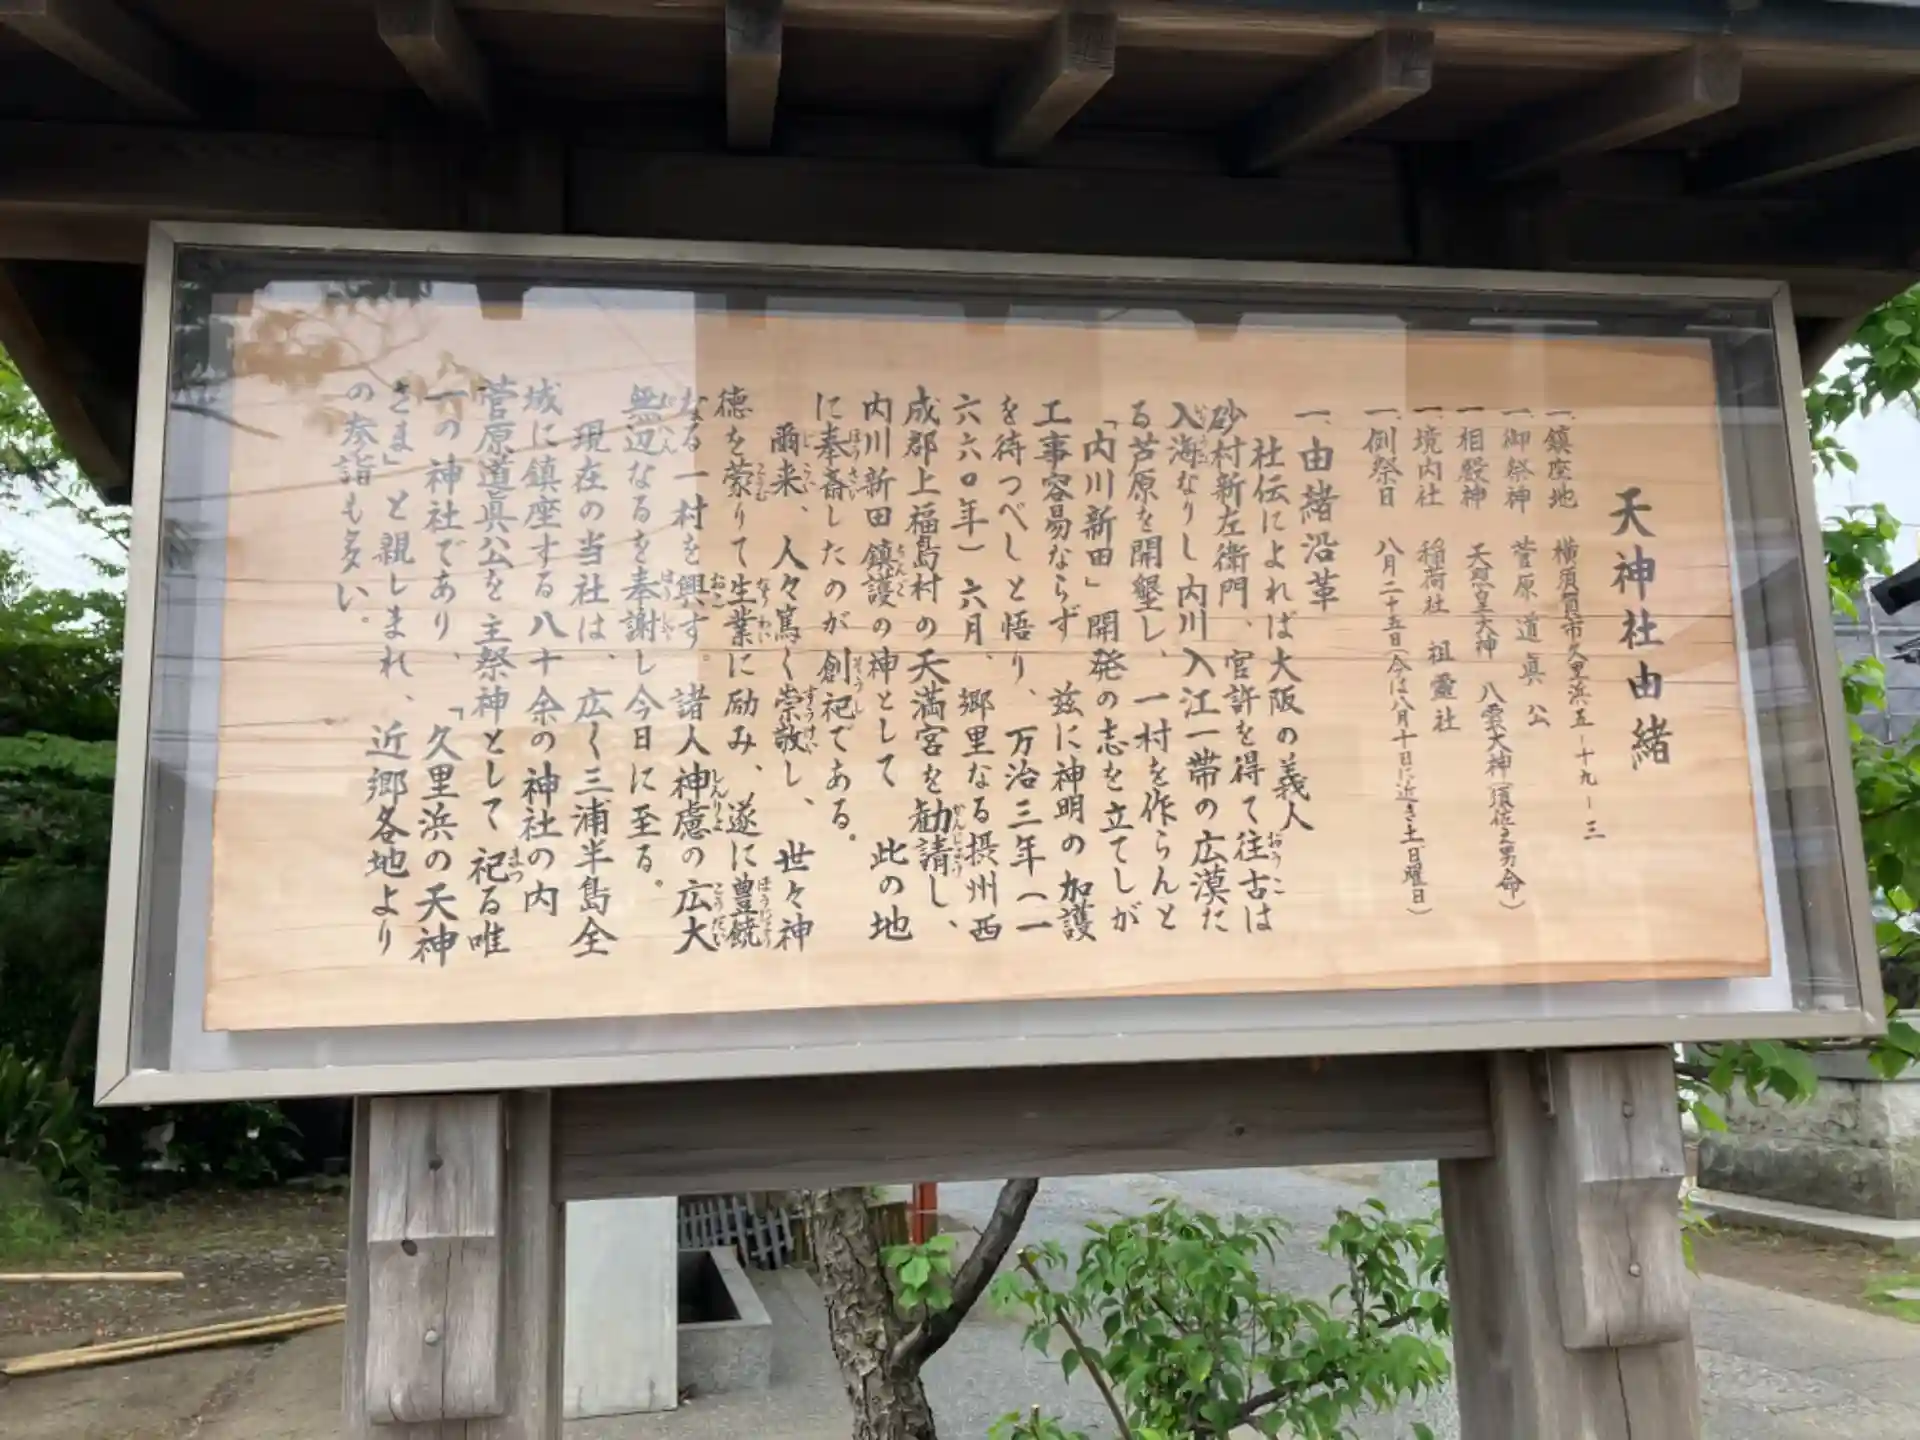 天神社由緒
一、鎮座地 横須賀市久里浜五ー十九ー三
一、御祭神 菅原道眞公
一、相殿神 天照皇大神 八雲大神(須佐之男命)
一、境内社 稲荷社 祖霊社
一、例祭日 八月二十五日(今は八月十日に近き土日曜日)
一、由緒沿革
社伝によれば大阪の義人
砂村新左衛門、官許を得て往古は
入海なりし内川入江一帯の広漠た
る芦原を開墾し、一村を作らんと
「内川新田」開発の志を立てしが
工事容易ならず 茲に神明の加護
を待つべしと悟り、万治三年(一
六六〇年)六月、郷里なる摂州西
成郡上福島村の天満宮を勧請し、
内川新田鎮護の神として 此の地
に奉斎したのが創祀である。
爾来、人々篤く崇敬し、世々神
徳を蒙りて生業に励み、遂に豊饒
なる一村を興す。諸人神慮の広大
無辺なるを奉謝し今日に至る。
現在の当社は、広く三浦半島全
域に鎮座する八十余の神社の内
菅原道眞公を主祭神として祀る唯
一の神社であり、「久里浜の天神
さま」と親しまれ、近郷各地より
の参詣も多い。